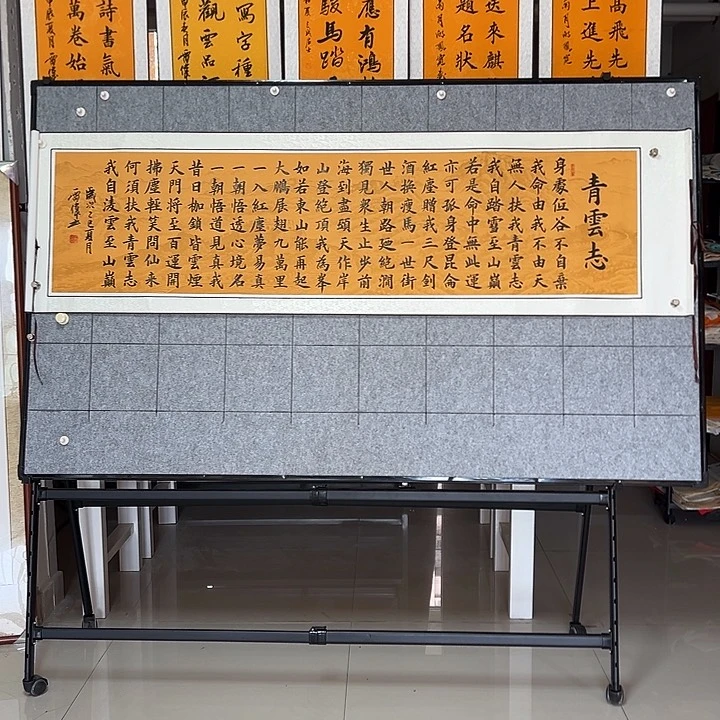 高飛先
上進先
送來麒
題名狀
應有鴻
駿馬踏
寫字種
觀雲品
雷偉
詩書氣
萬卷始
甲辰夏月
雷偉
青雲志
身處低谷不自棄
我命由我不由天
無人扶我青雲志
我自踏雪至山巔
若是命中無此運
亦可孤身登昆侖
紅塵贈我三尺劍
酒換瘦馬一世街
世人朝路廻絶澗
獨見眾生止步前
海到盡頭天作岸
山登絶頂我為峯
如若東山能再起
大鵬展翅九萬里
一入紅塵夢易真
一朝悟透心境名
一朝悟道見真我
昔日枷鎖皆雲煙
天門將至百運開
拂塵輕笑問仙來
何須扶我青雲志
我自淩雲至山巔
歲次乙巳夏月
雷偉書